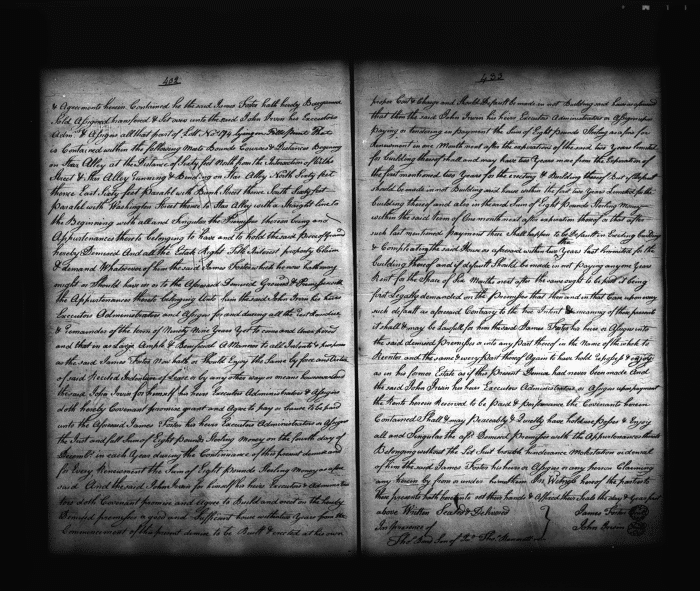 402
& Agreements herein Contained he the said James Foster hath hereby Bargained
Sold Assigned transferred & Set over unto the said John Irvin his Executors
Adm & Assigns all that part of Lott No 174 lying on That
is Contained within the following Meets Bounds Courses & Distances Begining
on Star Alley at the Distance of Sixty feet North from the Intersection of
Street & Star Alley runing & Binding on Star Alley North Sixty feet
thence East Sixty feet Parallel with Bank Street thence South Sixty feet
Parallel with Washington Street thence to Star Alley with a Straight line to
the Beginning with all and Singular the Premisses thereon being and
Appurtenances thereto belonging to have and to hold the said Premisses
hereby Demised And all the Estate Right Title Interest property Claim
& demand Whatsoever of him the said James Foster which he now hath may
ought or Should have in or to the Aforesaid Demised Ground & Premisses with
the Appurtenances thereto belonging Unto him the said John Irvin his heirs
Executors Administrators and Assigns for and during all the Rest Residue
& Remainder of the term of Ninety Nine Years Yet to come and unexpired
and that in as Large Ample & Beneficial A Manner to all Intents & purposes
as the said James Foster Now hath or Should Enjoy the Same by force and Virtue
of said Recited Indenture of Lease or by any other ways or means howsoever And
the said John Irvin for himself his heirs Executors Administrators & Assigns
doth hereby Covenant promise grant and Agree to pay or Cause to be paid
unto the Aforesaid James Foster his heirs Executors Administrators or Assigns
the Just and full Sum of Eight pounds Sterling Money on the fourth day of
Decemb in each Year during the Continuance of this present demise and
for Every Renewment the Sum of Eight pounds Sterling Money as afore
said And the said John Irvin for himself his heirs Executors & Administrators
doth Covenant promise and Agree to Build and erect on the
Demised premisses a good and Sufficient house within two Years from the
Commencement of this present demise to be Built & erected at his own
433
proper Cost & Charge and Should Default be made in not Building and house as aforesaid
that then the said John Irvin his heirs Executors Administrators or Assigns
Paying or tendering in payment the Sum of Eight Pounds Sterling as a fine for
Renewment in one Month next after the expiration of the said two Years limited
for building thereof shall and may have two Years more from the Expiration of
the first mentioned two Years for the erecting & Building thereof But if Default
should be made in not Building said house within the first two Years Limited for the
building thereof and also in the said Sum of Eight Pounds Sterling Money
within the said term of One month next after expiration thereof or that after
such last mentioned payment there Shall happen to be Default in Erecting Building
& Compleating the said House as aforesaid within the two Years last limited for the
building thereof and if default Should be made in not Paying any one Years
Rent for the Space of Six Months next after the same ought to be paid it being
first Legally demanded on the Premisses that then and in that Case upon every
such default as aforesaid Contrary to the true Intent & meaning of these presents
it shall & may be lawfull for him the said James Foster his heirs or Assigns into
the said demised Premisses or into any Part thereof in the Name of the whole to
Reenter and the same & every Part thereof Again to have hold repossess & enjoy
as in his former Estate as if this Present Demise had never been made And
the said John Irvin his heirs Executors Administrators or Assigns upon payment
the Rents herein Reserved to be paid & performance the Covenants herein
Contained Shall & may Peaceably & Quietly have hold use Possess & Enjoy
all and Singular the afs Demised Premisses with the Appurtenances thereto
Belonging without the Let Suit trouble hinderance Molestation or denial
of him the said James Foster his heirs or Assigns or any person Claiming
any herein by from or under him them In Witness hereof the parties to
these presents hath hereunto set their hands & Affixed their Seals the day & Year first
above Written Sealed & Deliverd
In presence of
James Foster
John Irvin